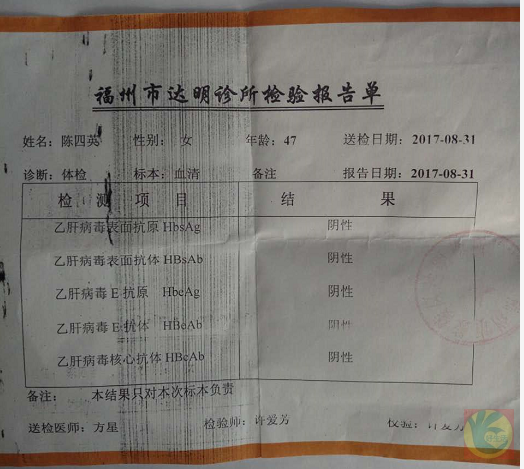 福州市达明诊所检验报告单
姓名：陈四英 性别：女 年龄：47 送检日期：2017-08-31
诊断：体检 标本：血清 备注 报告日期：2017-08-31
检 测 项 目 结 果
乙肝病毒表面抗原 HbsAg 阴性
乙肝病毒表面抗体 HBsAb 阴性
乙肝病毒 E 抗原 HbeAg 阴性
乙肝病毒 E 抗体 HBeAb 阴性
乙肝病毒核心抗体 HBcAb 阴性
备注： 本结果只对本次标本负责
送检医师：方星 检验师：许爱芳 校验：许爱芳